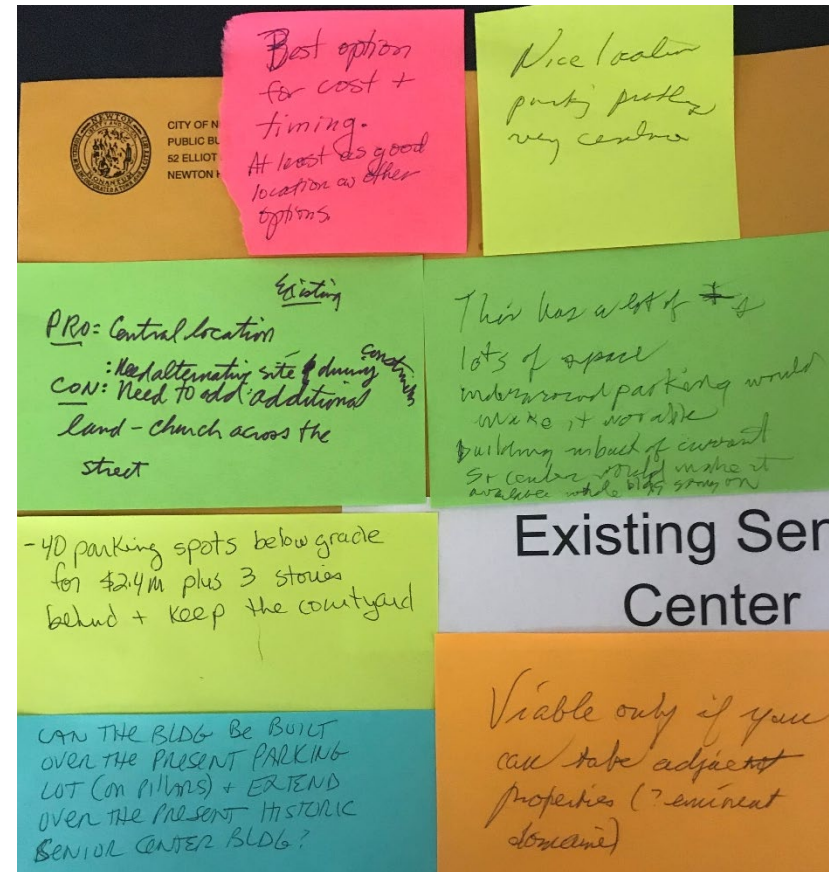 Best option
for cost +
timing.
At least as good
location as other
options.
Nice location
parking
very
NEWTON
CITY OF N
PUBLIC BU
52 ELLIOT
NEWTON H
Existing
PRO: Central location
: Need alternative site during
CON: Need to add additional
land - church across the
street
This has a lot of
lots of space
underground parking would
make it
building in back of current
Sr center would make it
available while bldg going on
-40 parking spots below grade
for $2.4m plus 3 stories
behind + keep the courtyard
Existing Sen
Center
CAN THE BLDG BE BUILT
OVER THE PRESENT PARKING
LOT (on Pillars) + EXTEND
OVER THE PRESENT HISTORIC
SENIOR CENTER BLDG?
Viable only if you
can take adjacent
properties (? eminent
domaine)